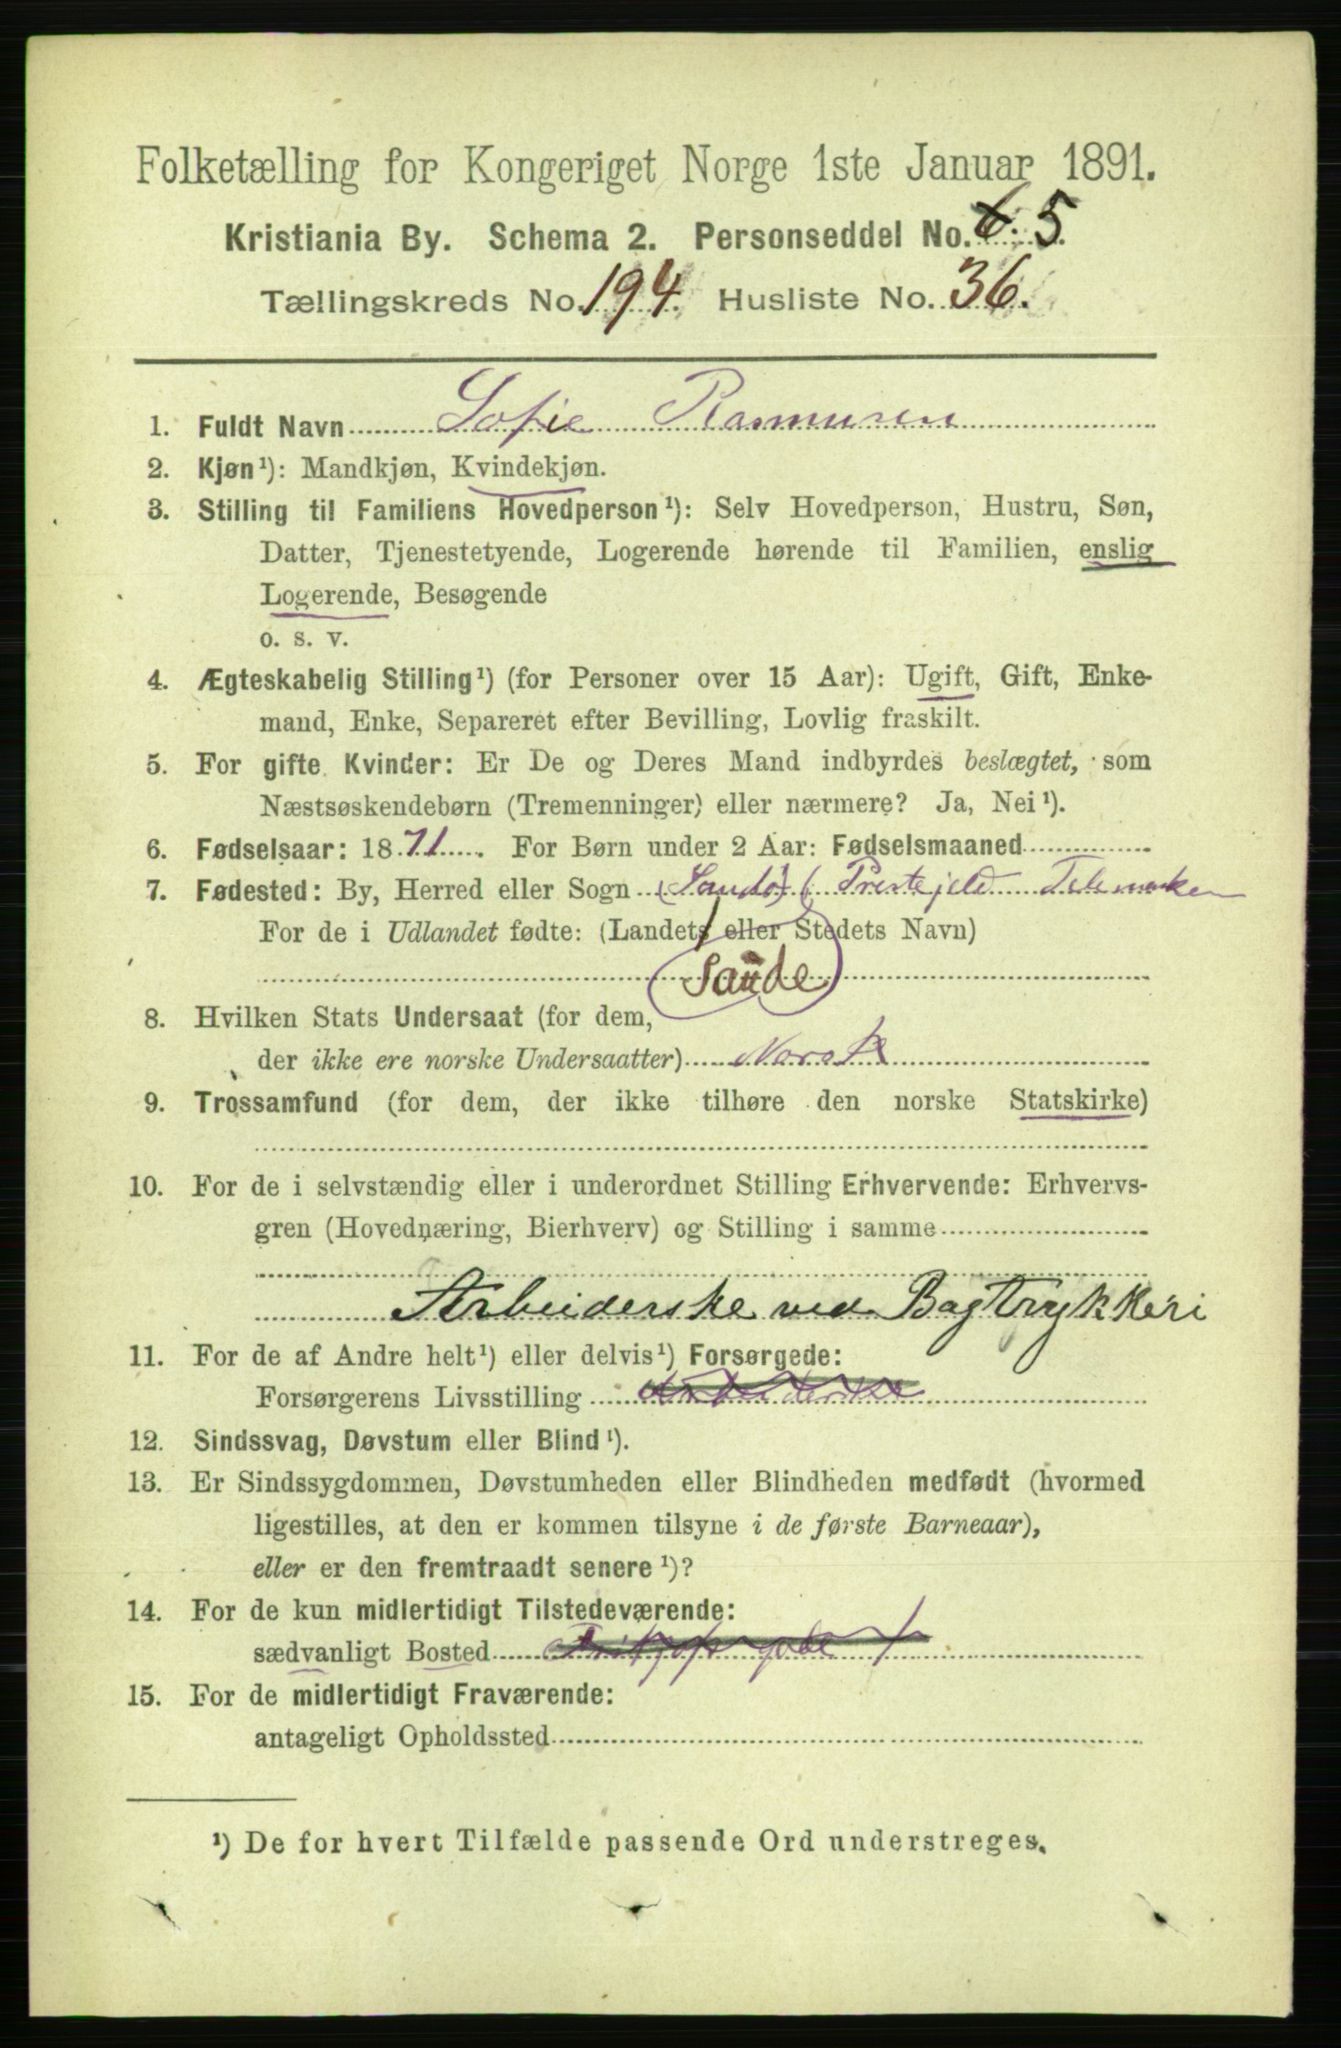 Folketælling for Kongeriget Norge 1ste Januar 1891.
Kristiania By. Schema 2. Personseddel No. 6. 5.
Tællingskreds No. 194. Husliste No. 36.
1. Fuldt Navn Sofie Rasmusen
2. Kjøn¹): Mandkjøn, Kvindekjøn.
3. Stilling til Familiens Hovedperson¹): Selv Hovedperson, Hustru, Søn,
Datter, Tjenestetyende, Logerende hørende til Familien, enslig
Logerende, Besøgende
o. s. v.
4. Ægteskabelig Stilling¹) (for Personer over 15 Aar): Ugift, Gift, Enke-
mand, Enke, Separeret efter Bevilling, Lovlig fraskilt.
5. For gifte Kvinder: Er De og Deres Mand indbyrdes beslægtet, som
Næstsøskendebørn (Tremenninger) eller nærmere? Ja, Nei¹).
6. Fødselsaar: 1871. For Børn under 2 Aar: Fødselsmaaned
7. Fødested: By, Herred eller Sogn (Saudø) Prestejeld Telemarken
For de i Udlandet fødte: (Landets eller Stedets Navn)
Saude
8. Hvilken Stats Undersaat (for dem,
der ikke ere norske Undersaatter) Norsk
9. Trossamfund (for dem, der ikke tilhøre den norske Statskirke)
10. For de i selvstændig eller i underordnet Stilling Erhvervende: Erhvervs-
gren (Hovednæring, Bierhverv) og Stilling i samme
Arbeiderske ved Bogtrykkeri
11. For de af Andre helt¹) eller delvis¹) Forsørgede:
Forsørgerens Livsstilling Arbeiderske
12. Sindssvag, Døvstum eller Blind¹).
13. Er Sindssygdommen, Døvstumheden eller Blindheden medfødt (hvormed
ligestilles, at den er kommen tilsyne i de første Barneaar),
eller er den fremtraadt senere¹)?
14. For de kun midlertidigt Tilstedeværende:
sædvanligt Bosted
15. For de midlertidigt Fraværende:
antageligt Opholdssted
¹) De for hvert Tilfælde passende Ord understreges.